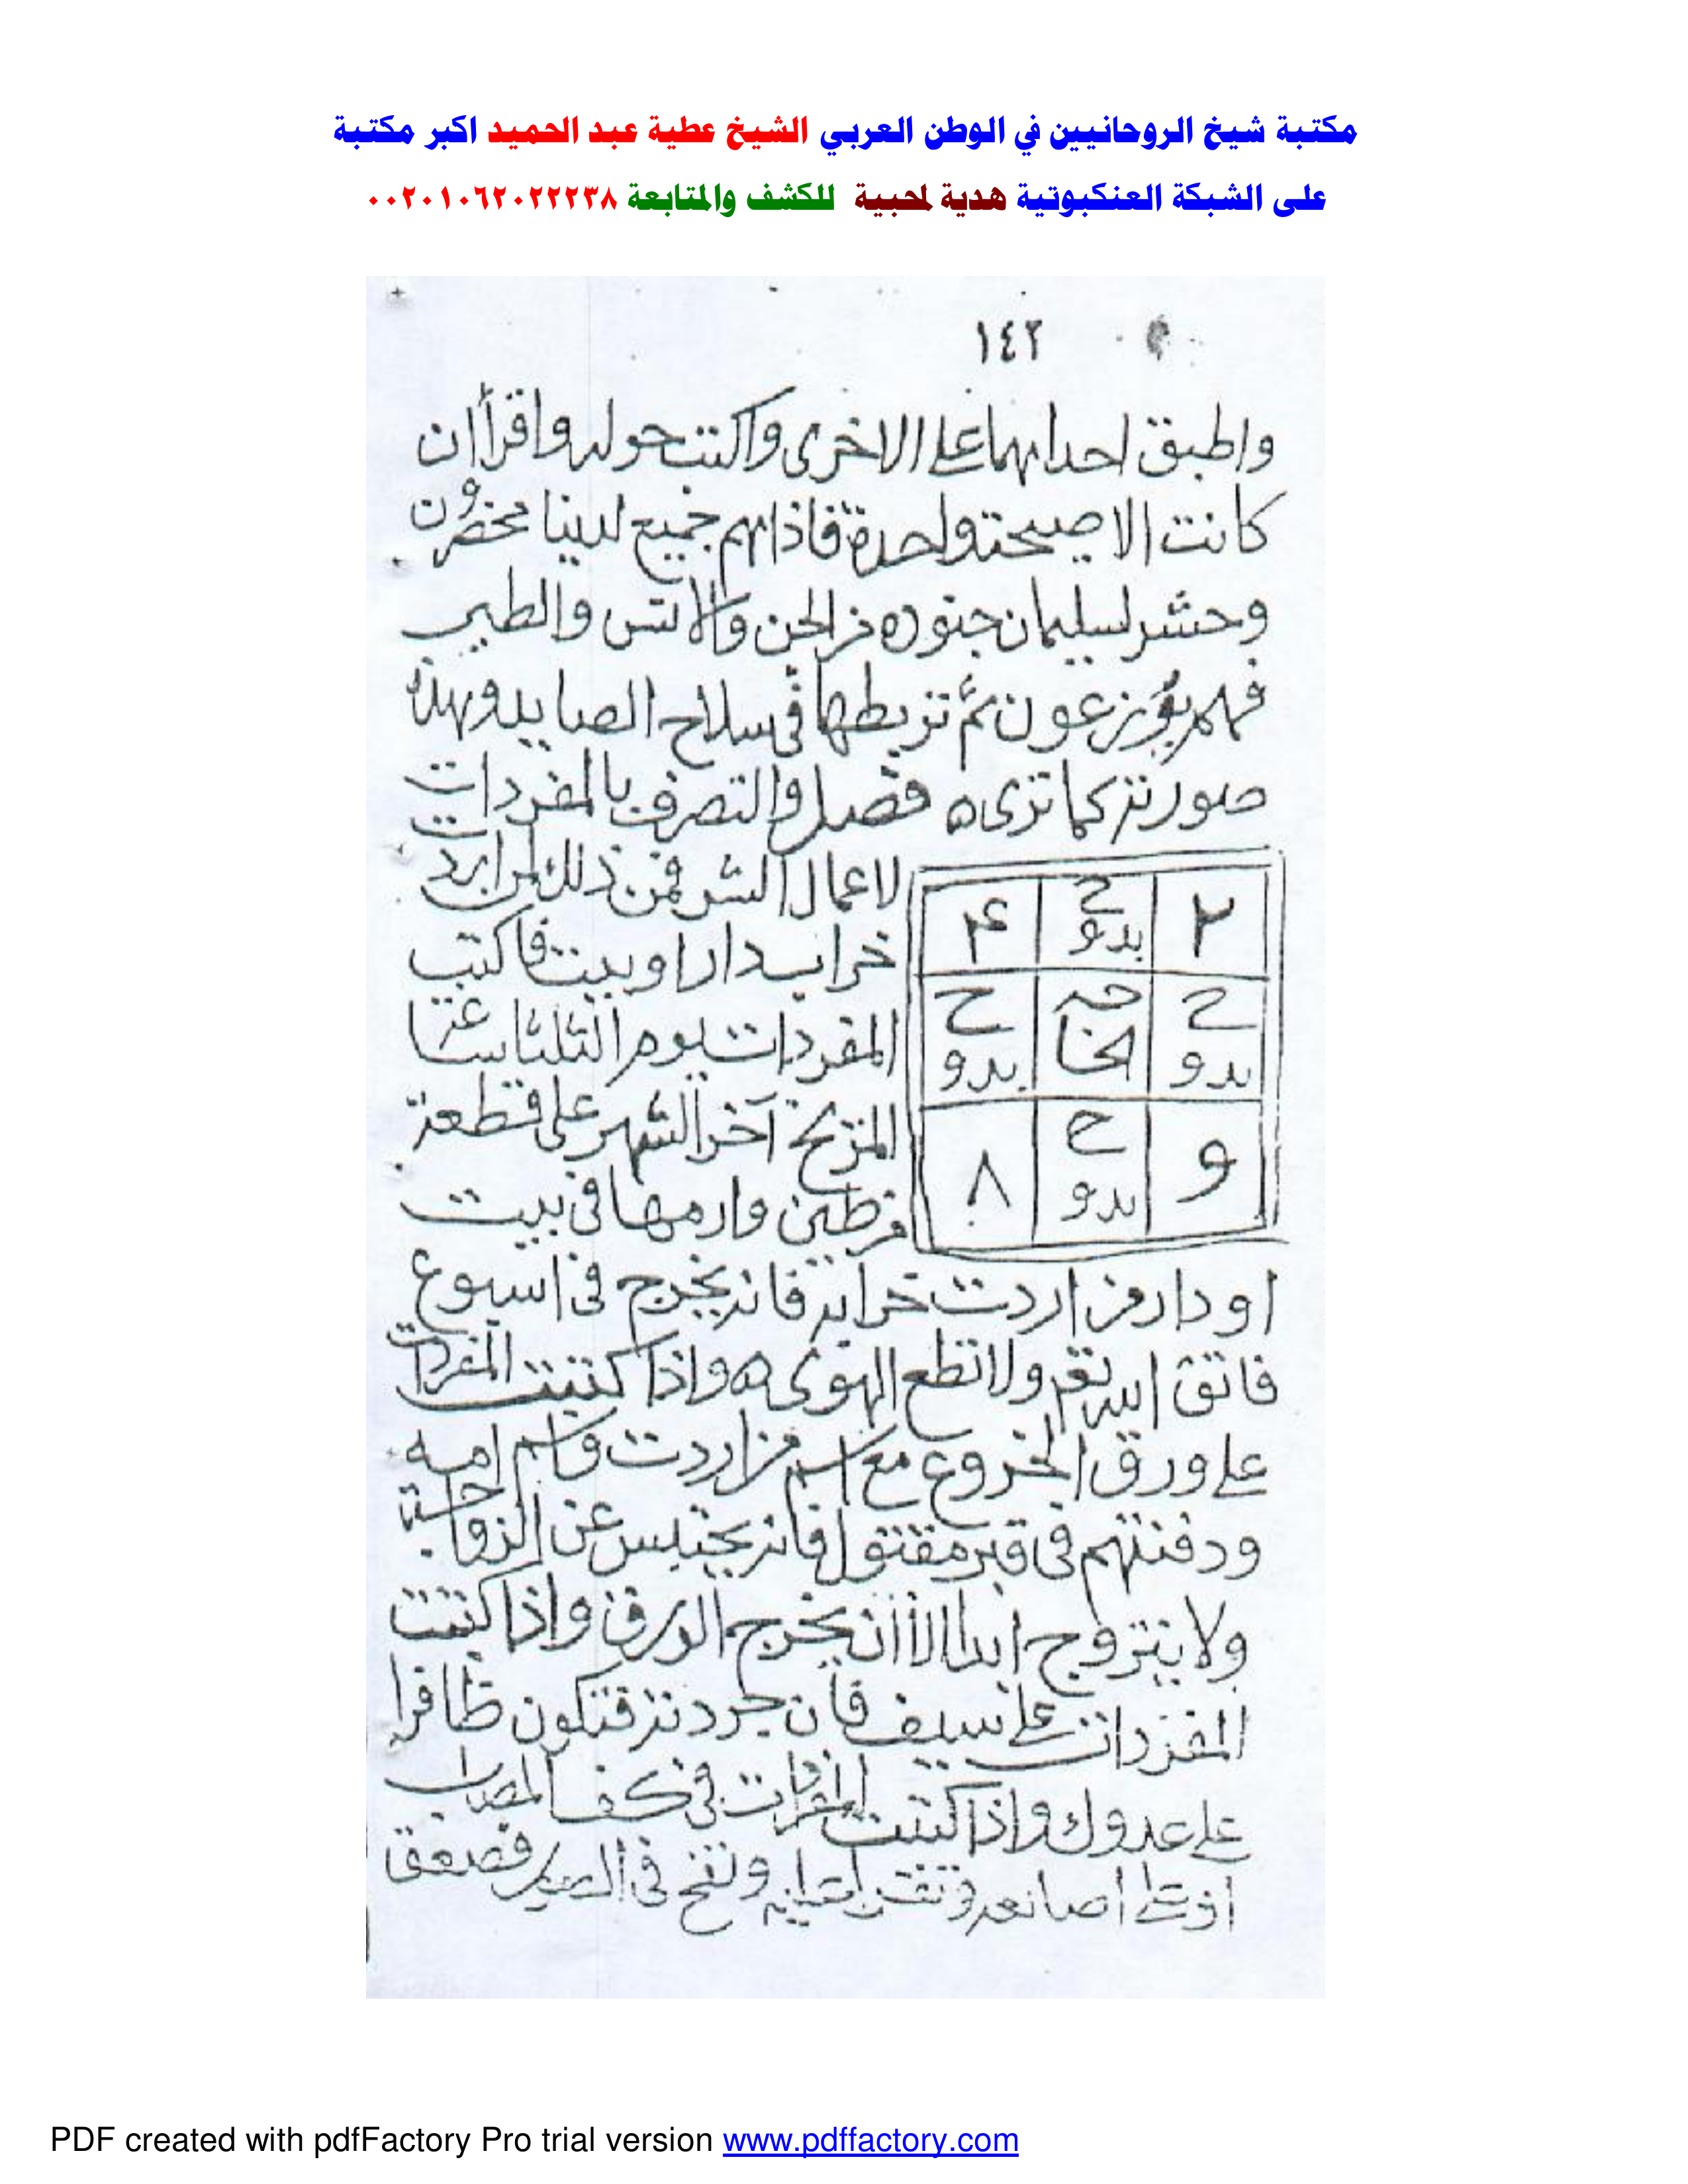 مكتبة شيخ الروحانيين في الوطن العربي الشيخ عطية عبد الحميد اكبر مكتبة
على الشبكة العنكبوتية هدية لمحبية للكشف والمتابعة ٠٠٢٠١٠٦٢٠٢٢٢٣٨
١٤٢
واطبق احداهما على الاخرى واكتب حوله واقرأ ان
كانت الا صيحة واحدة فاذا هم جميع لدينا محضرون
وحشر لسليمان جنوده من الجن والانس والطير
فهم يوزعون ثم تربطها في سلاح الصايد وهذه
صورته كما ترى ه فصل والتصرف بالمفردات
لاعمال الشر فمن ذلك لمن ايرد
خراب دار او بيت فاكتب
المفردات يوم الثلثا ساعة
المريخ آخر الشهر على قطعة
من طين وارمها في بيت
٢ ح بدو ۴
ح بدو الخا ح بدو
و ح بدو ٨
او دار من اردت خرابه فانه يخرج في اسبوع
فاتق الله تعم ولا تطع الهوى ه واذا كتبت المفردات
على ورق الخروع مع اسم من اردت واسم امه
ودفنتهم في قبر مقتول فانه يحتبس عن الزواجة
ولا يتزوج ابدا الا أن يخرج الورق واذا كتبت
المفردات على سيف فان جردته فتكون ظافرا
على عدوك واذا كتبت المفردات في كف المصاب
او على أصابعه ونفخ في فصعق